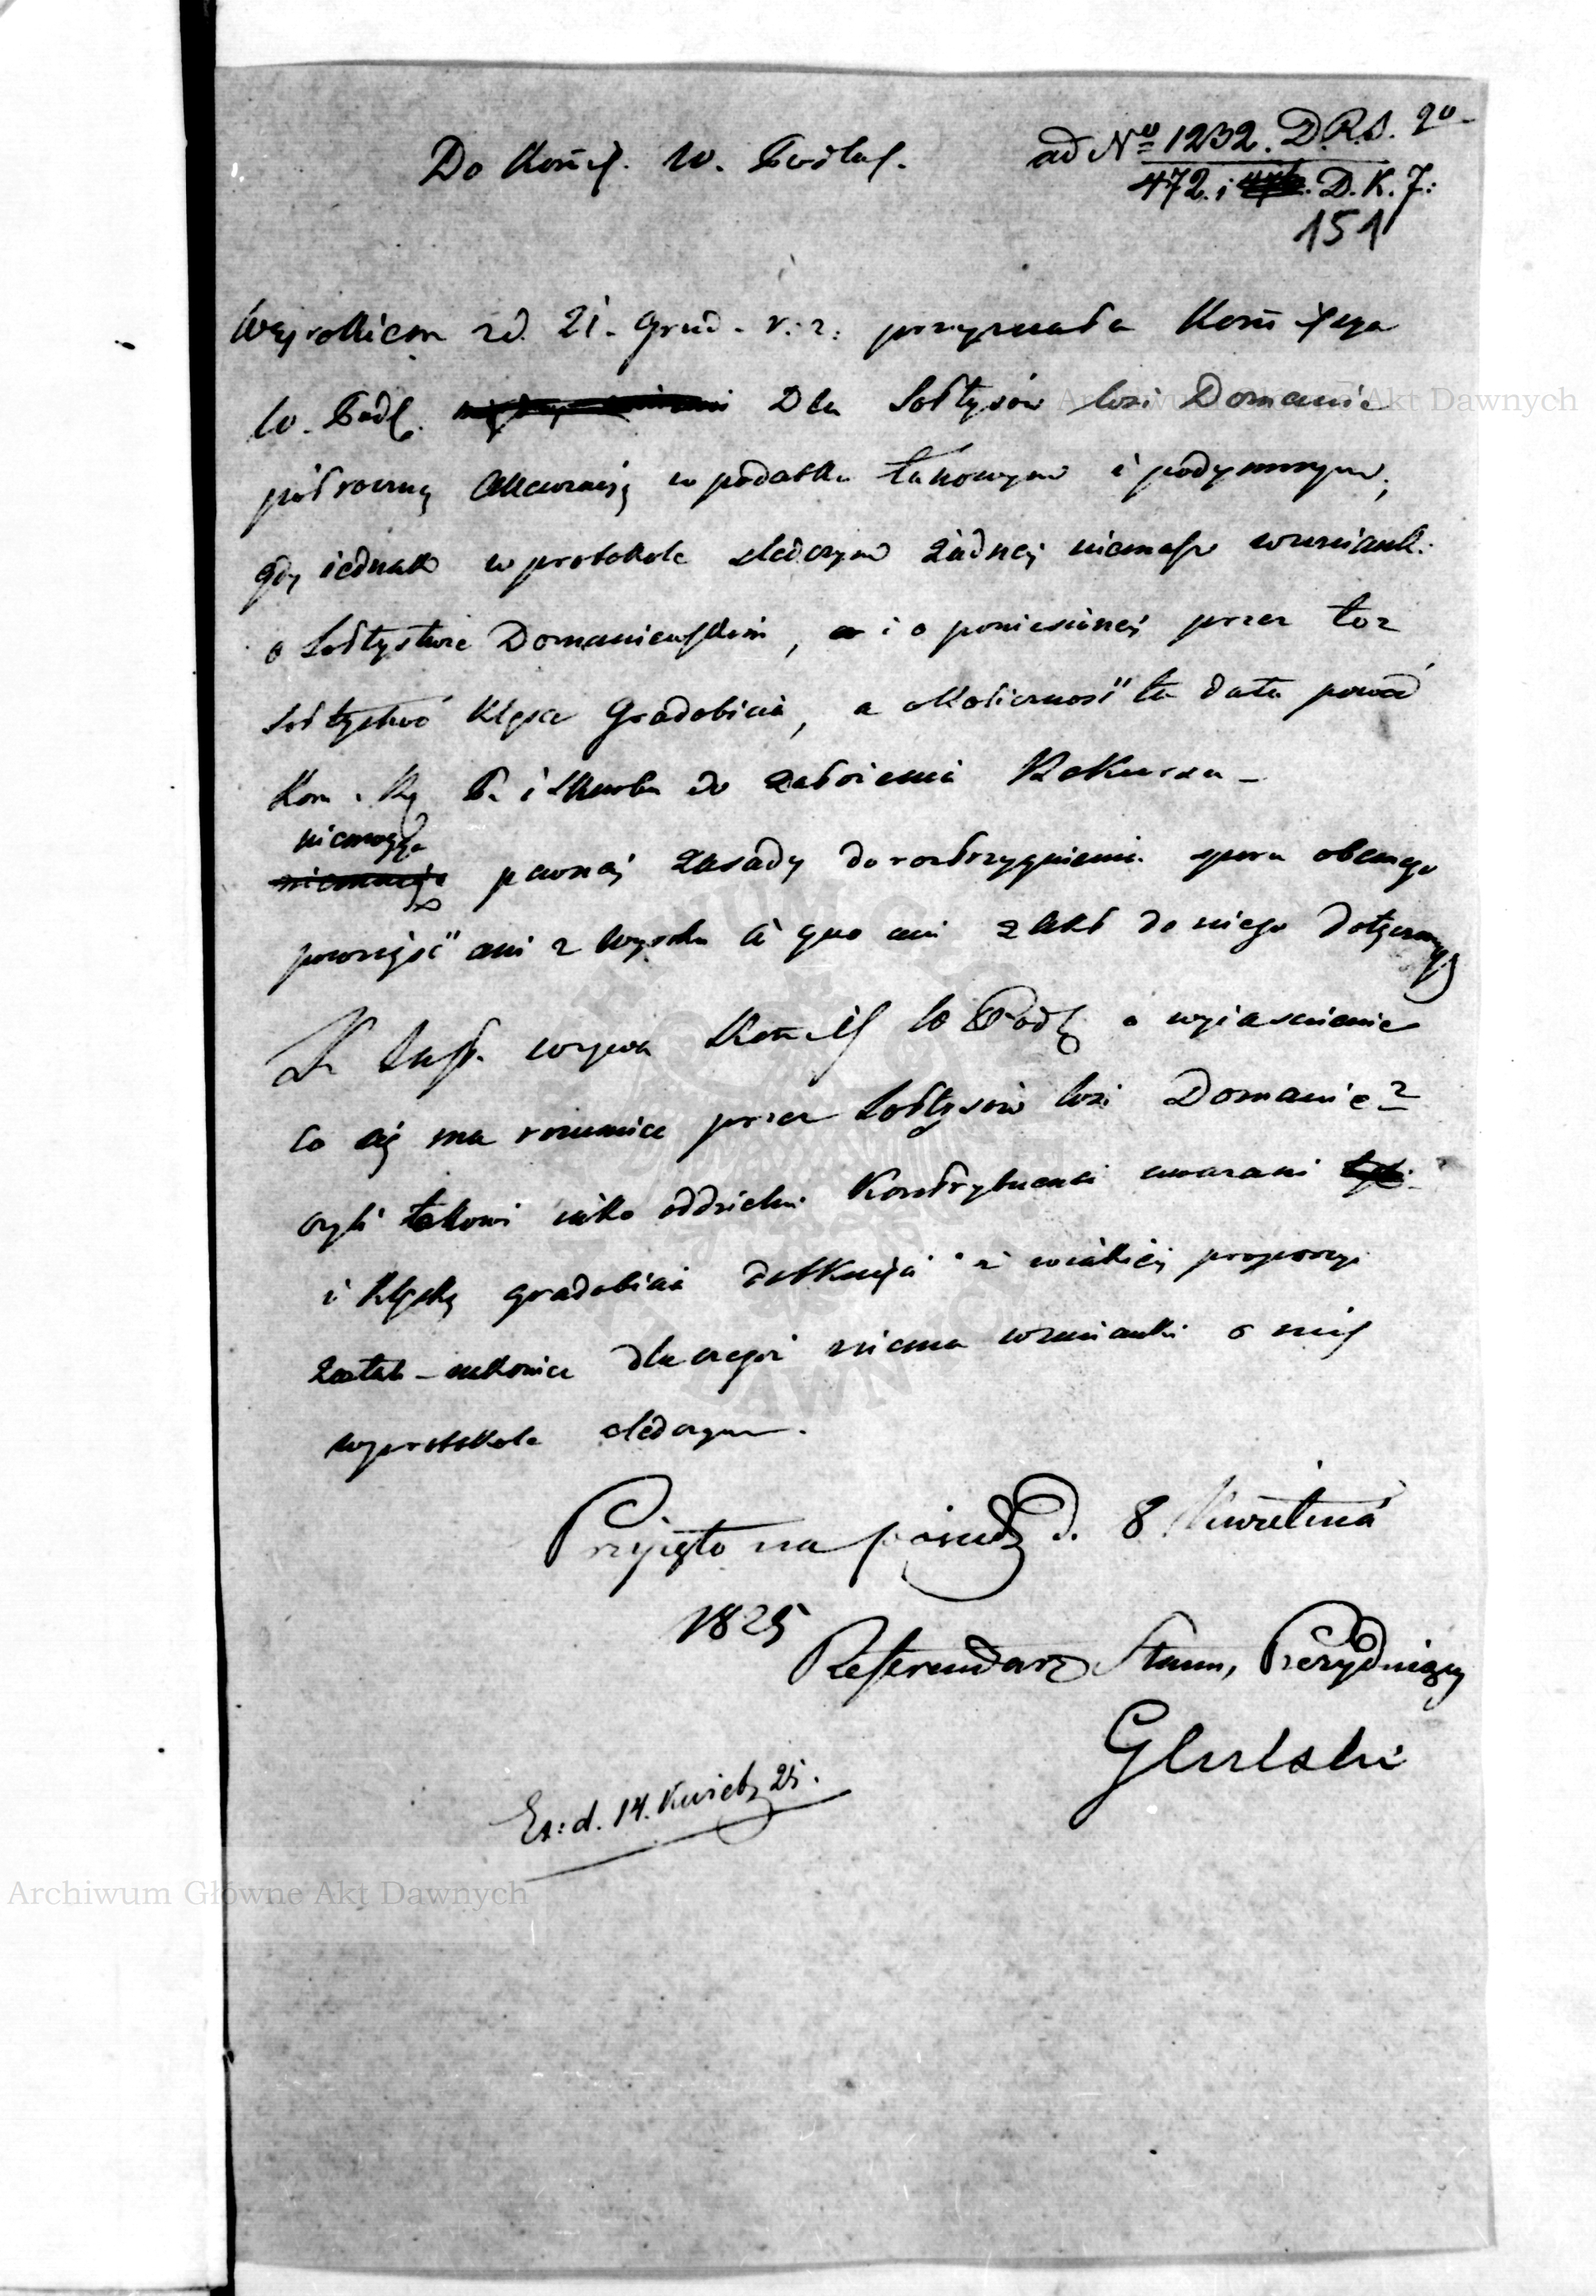 Do Kom̃iss. W. Podlas.
ad Nº 1232. D.R.S. 20
472. i D. K. J:
151
Wyrokiem z d. 21. Grud. r. z. przyznała Kom̃issya
W. Podl. Dla Sołtysów wsi Domanic
półroczną allewiacją w podatku łanowym i podymnym,
gdy iednak w protokole śledczym żadnej niemasz wzmianki
o Sołtystwie Domaniewskim, i o poniesionej przez toż
Sołtystwo klęsce Gradobicia, a okoliczność ta dała powód
Kom. Rz. P. i Skarbu do założenia Rekursu –
niemogąc pewnej zasady do rozstrzygnienia sporu obecnego
powziąść ani z wyroku à quo ani z akt do niego dołączonych
wzywa Kom̃iss W Podl o wyiasnienie
co się ma rozumieć przez Sołtysów wsi Domanic?
czyli takowi iako oddzielni Kontrybuenci uważani
i klęską gradobicia dotknięci i w iakiej proporcyi
zostali – nakoniec dla czegoż niema wzmianki o nich
w protokole śledczym.
Przyjęto na posiedz d. 8 Kwietnia
1825
Referendarz Stanu, Prezyduiący
Ex: d. 14. Kwiet 25.
Archiwum Główne Akt Dawnych